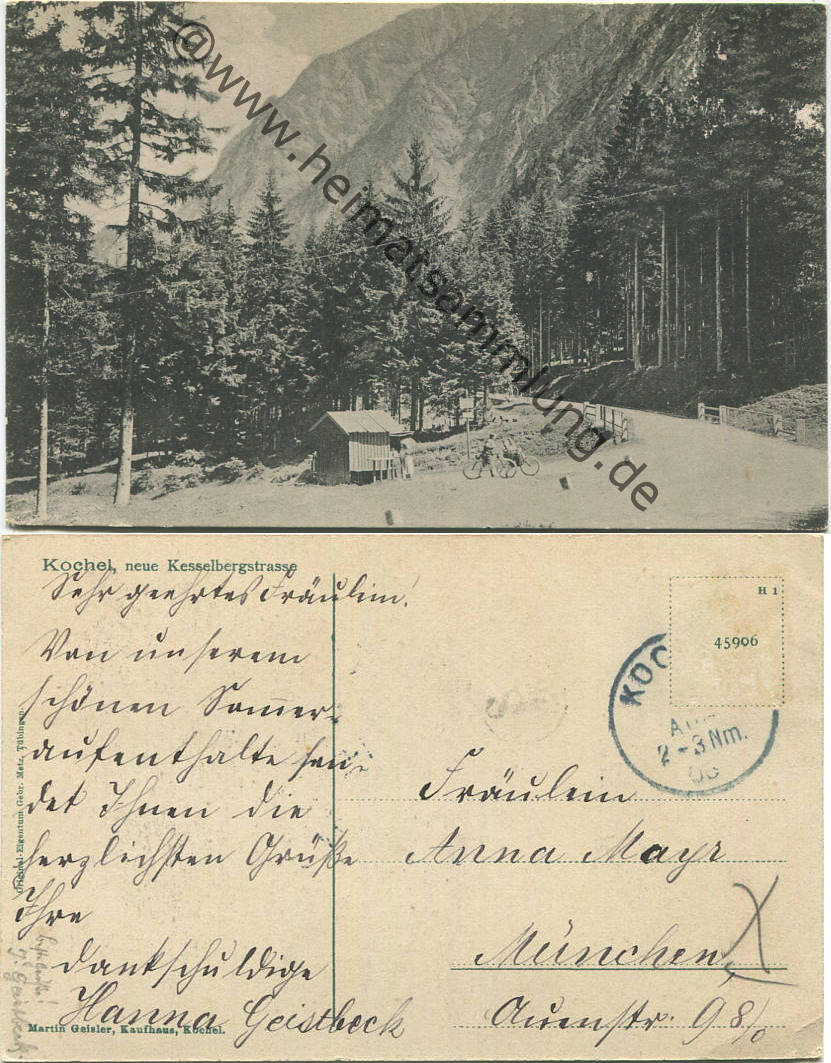 @www.heimatsammlung.de
Kochel, neue Kesselbergstrasse
Sehr geehrtes Fräulein!
Von unserem
schönen Sommer-
aufenthalte sen-
det Ihnen die
herzlichsten Grüße
Ihre
dankschuldige
Hanna Geistbeck
Martin Geisler, Kaufhaus, Kochel.
Lichtdr.-Eigentum Gebr. Metz, Tübingen.
H 1
45906
KOC
2-3 Nm.
Fräulein
Anna Mayr
München
Auenstr. 98/0